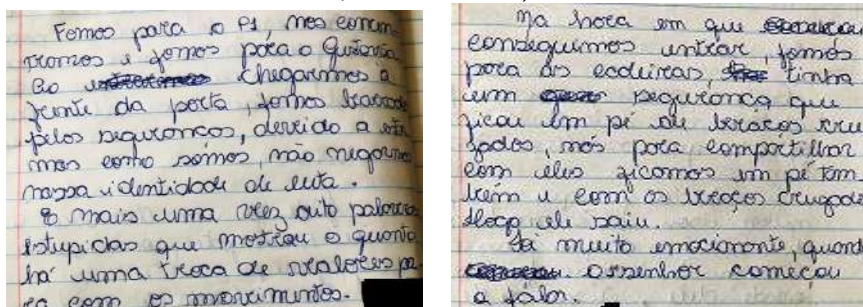 Fomos para o P1, nos encon-
tramos e fomos para o Gustavia
Ao chegarmos à
frente da porta, fomos barrados
pelos seguranças, devido a
mas como somos, não negamos
nossa identidade de luta.
E mais uma vez palavras
estupidas que mostrou o quanto
há uma troca de valores pa-
ra com os movimentos.
Na hora em que
conseguimos entrar, fomos
para as cadeiras, tinha
um segurança que
ficou em pé de braços cru-
zados, nós para compartilhar
com eles ficamos em pé tam-
bém e com os braços cruzados
Logo ele saiu.
Tá muito emocionante, quando
o senhor começou
a falar.